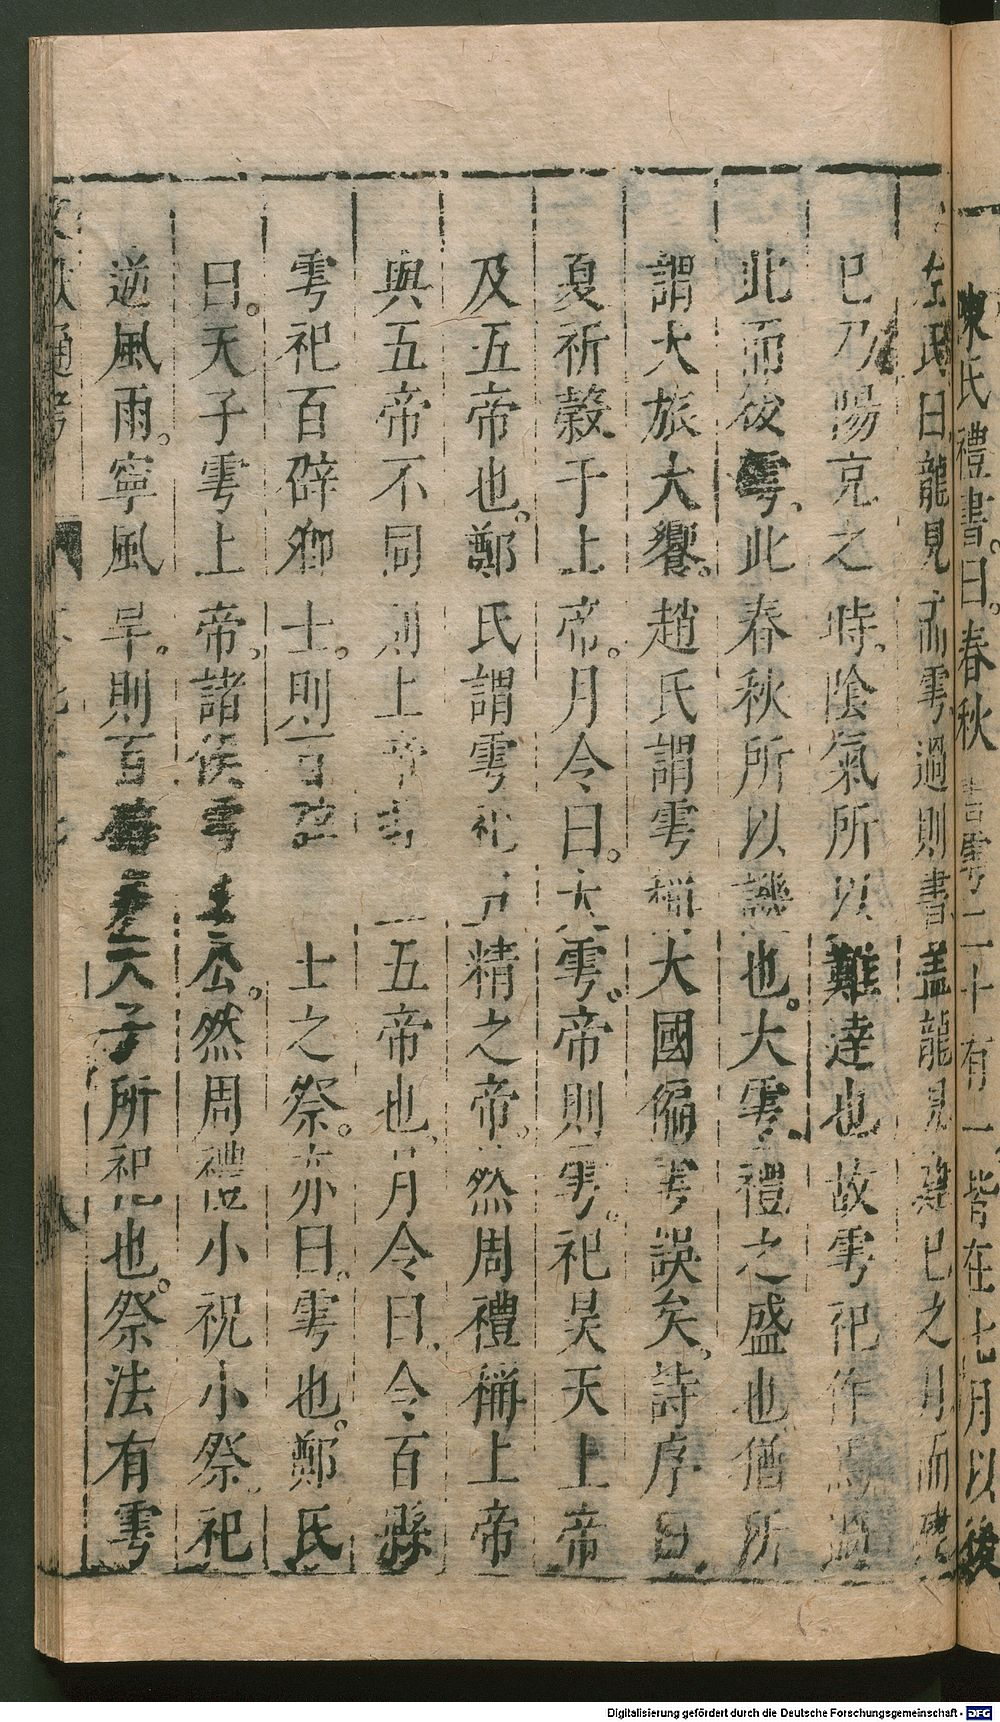 陳氏禮書曰春秋書雩二十有一皆在七月以後
左氏曰龍見而雩過則書蓋龍見建巳之月而
巳乃陽亢之時陰氣所以難達也故雩祀作焉過
此而後雩此春秋所以譏也大雩禮之盛也猶所
謂大旅大饗趙氏謂雩稱大國徧雩誤矣詩序曰
夏祈穀于上帝月令曰大雩帝則雩祀昊天上帝
及五帝也鄭氏謂雩祀五精之帝然周禮稱上帝
與五帝不同則上帝非一五帝也月令曰令百縣
雩祀百辟卿士則百辟士之祭亦曰雩也鄭氏
曰天子雩上帝諸侯雩上公然周禮小祝小祭祀
逆風雨寧風旱則百天子所祀也祭法有雩
文獻通考
八
Digitalisierung gefördert durch die Deutsche Forschungsgemeinschaft - DFG